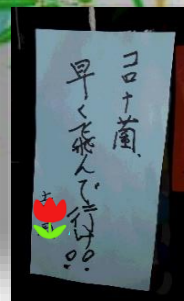 コロナ菌、
早くで飛んで行け!!